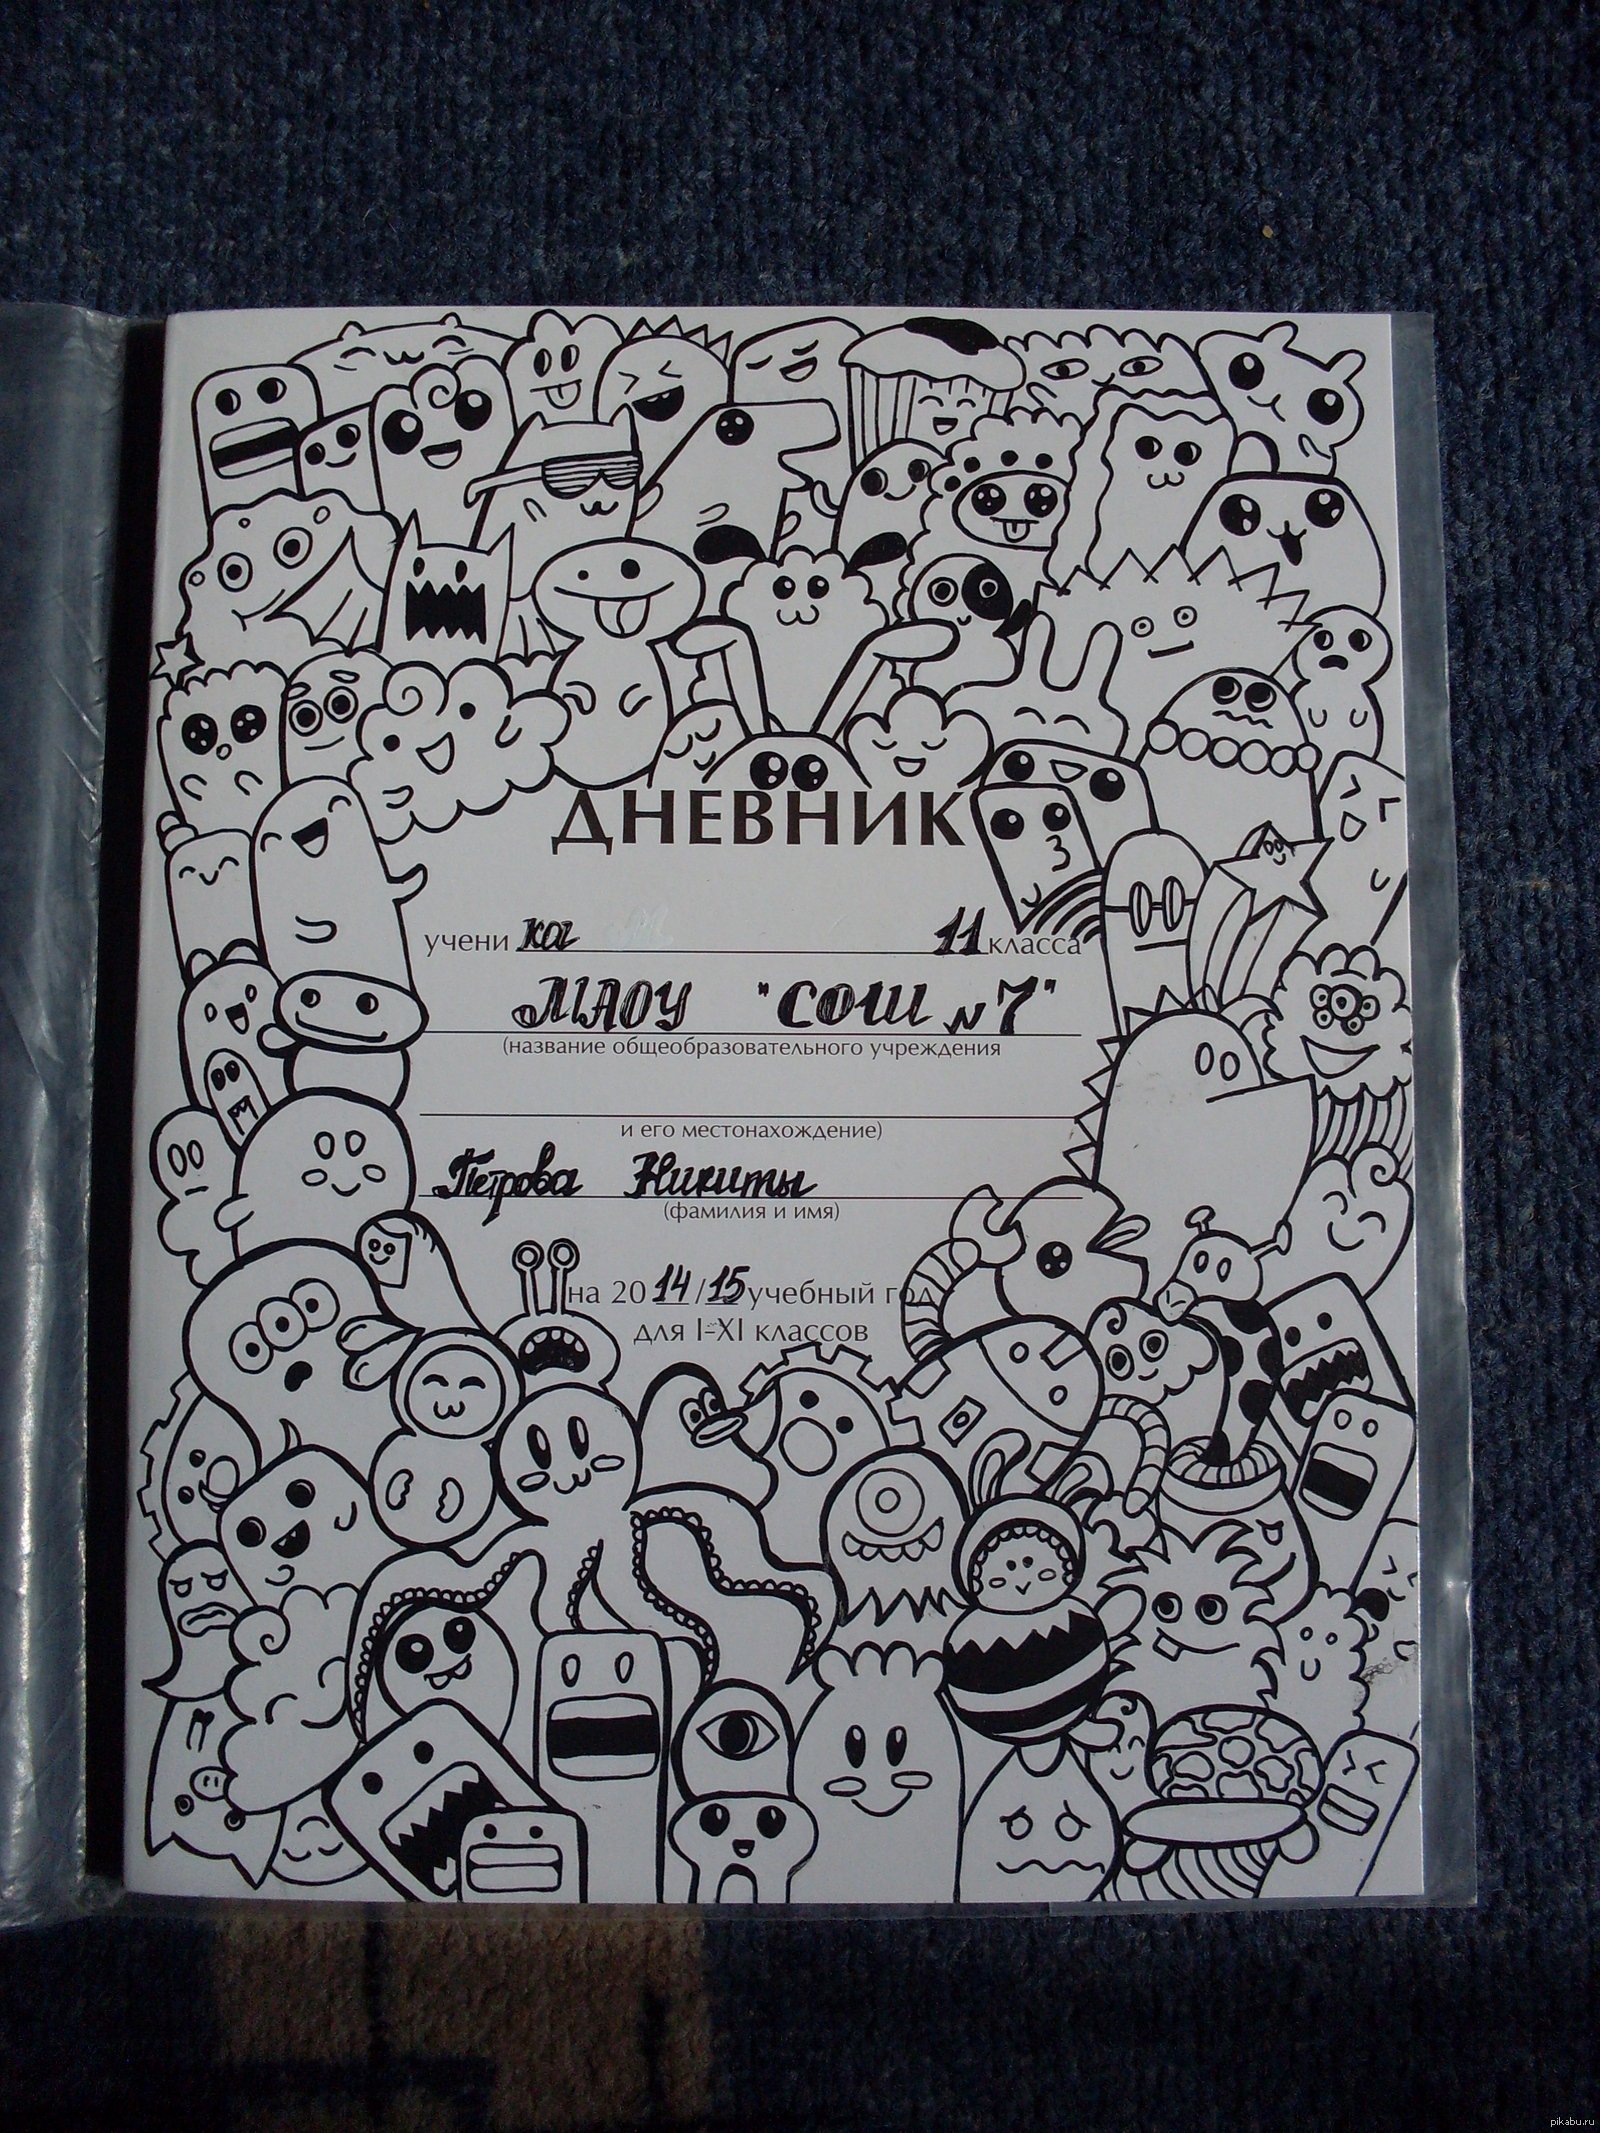 ДНЕВНИК
учени ка 11 класса
МАОУ "СОШ №7"
(название общеобразовательного учреждения
и его местонахождение)
Петрова Никиты
(фамилия и имя)
на 20 14 / 15 учебный год
для I-XI классов
pikabu.ru